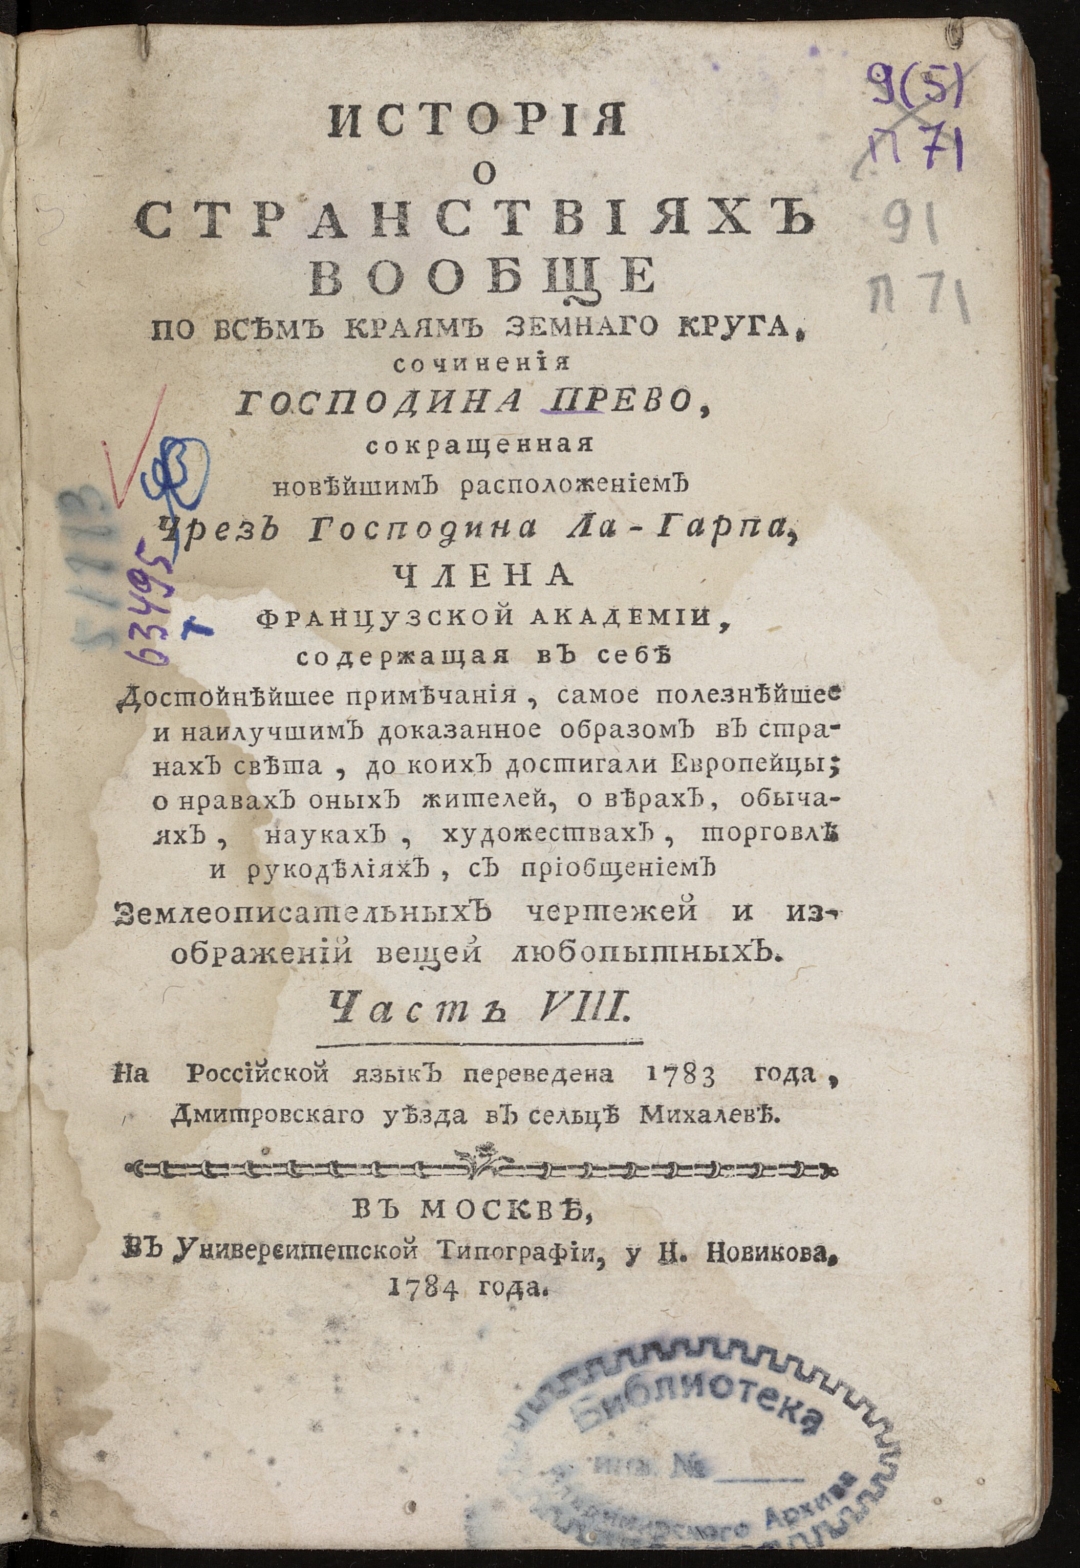 ИСТОРІЯ
О
СТРАНСТВІЯХЪ
ВООБЩЕ
ПО ВСѢМЪ КРАЯМЪ ЗЕМНАГО КРУГА,
сочиненія
ГОСПОДИНА ПРЕВО,
сокращенная
новѣйшимЪ расположеніемЪ
Чрезъ Господина Ла-Гарпа,
ЧЛЕНА
ФРАНЦУЗСКОЙ АКАДЕМІИ,
содержащая вЪ себѣ
Достойнѣйшее примѣчанія, самое полезнѣйшее
и наилучшимЪ доказанное образомЪ вЪ стра-
нахЪ свѣта, до коихЪ достигали Европейцы;
о нравахЪ оныхЪ жителей, о вѣрахЪ, обыча-
яхЪ, наукахЪ, художествахЪ, торговлѣ
и рукодѣліяхЪ, сЪ пріобщеніемЪ
ЗемлеописательныхЪ чертежей и из-
ображеній вещей любопытныхЪ.
Часть VIII.
На Россійской языкЪ переведена 1783 года,
Дмитровскаго уѣзда вЪ сельцѣ Михалевѣ.
ВЪ МОСКВѢ,
ВЪ Университетской Типографіи, у Н. Новикова,
1784 года.
9(5)
П 71
91
П 71
51113
63495
т
Библиотека
инв. №
Архива